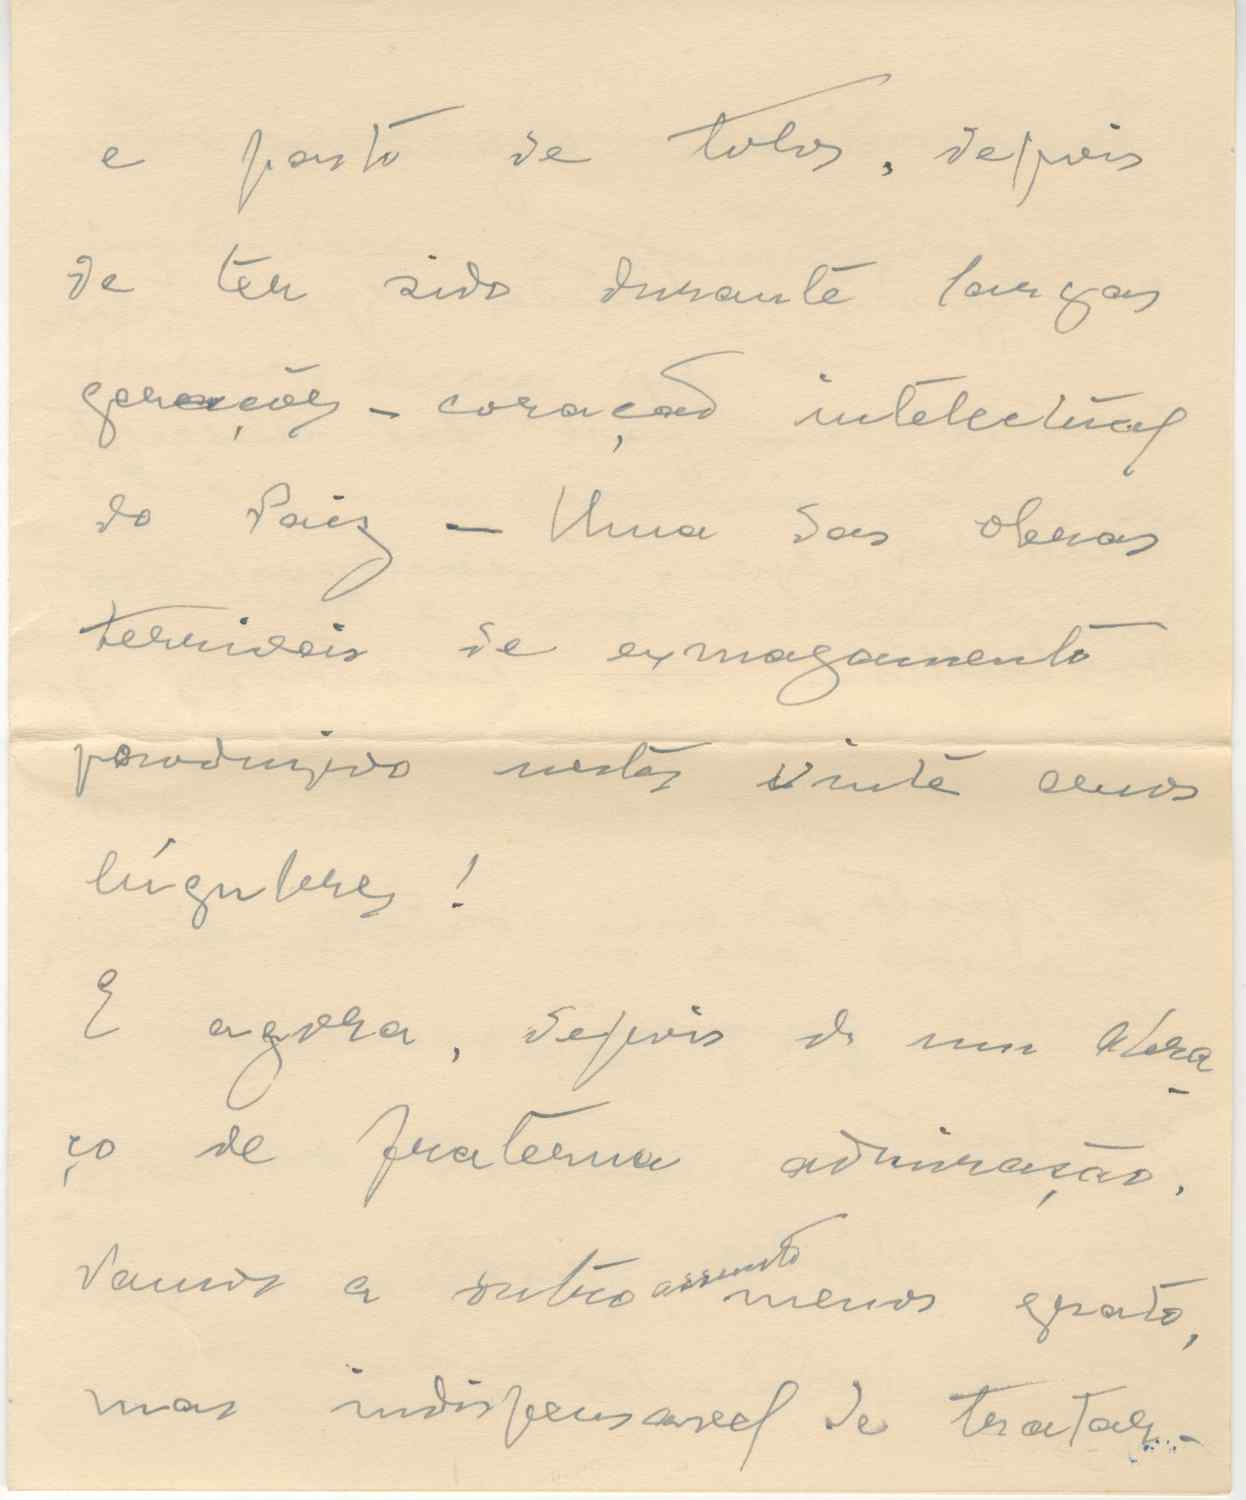 e pasto de tolos, depois
de ter sido durante largas
gerações - coração intelectual
do Paiz - Uma das obras
terriveis de exmagamento
produzido nestes vinte anos
lúgubres!
E agora, depois de um abra-
ço de fraterna admiração,
vamos a outro assunto menos grato,
mas indispensavel de tratar -